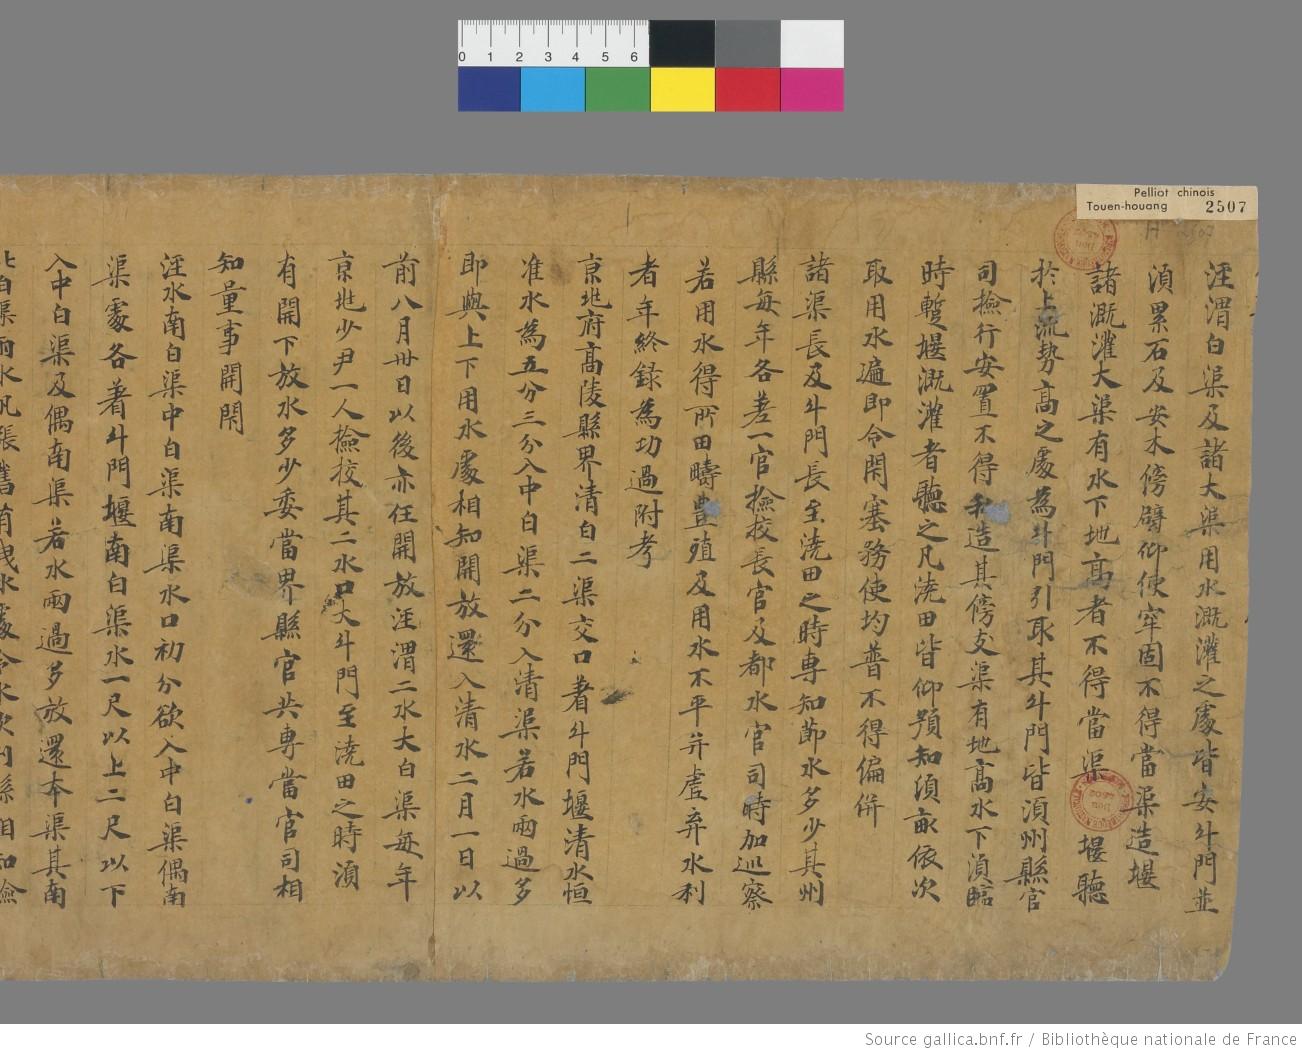 0 1 2 3 4 5 6
Pelliot chinois
Touen-houang 2507
涇渭白渠及諸大渠用水溉灌之處皆安斗門並
須累石及安木傍壁仰使牢固不得當渠造堰
諸溉灌大渠有水下地高者不得當渠堰聽
於上流勢高之處為斗門引取其斗門皆須州縣官
司撿行安置不得私造其傍支渠有地高水下須臨
時蹔堰溉灌者聽之凡澆田皆仰預知須畝依次
取用水遍即令閇塞務使均普不得偏併
諸渠長及斗門長至澆田之時專知節水多少其州
縣每年各差一官撿挍長官及都水官司時加巡察
若用水得所田疇豊殖及用水不平并虛弃水利
者年終錄為功過附考
京兆府高陵縣界清白二渠交口著斗門堰清水恒
准水為五分三分入中白渠二分入清渠若水雨過多
即與上下用水處相知開放還入清水二月一日以
前八月卅日以後亦任開放涇渭二水大白渠每年
京兆少尹一人撿挍其二水口大斗門至澆田之時須
有開下放水多少委當界縣官共專當官司相
知量事開閇
涇水南白渠中白渠南渠水口初分欲入中白渠偶南
渠處各著斗門堰南白渠水一尺以上二尺以下
入中白渠及偶南渠若水雨過多放還本渠其南
北白渠雨水汎漲舊有洩水處令水次州縣相知撿
Source gallica.bnf.fr / Bibliothèque nationale de France